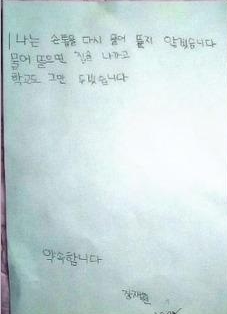 나는 손톱을 다시 물어 뜯지 않겠습니다
물어 뜯으면 집을 나가고
학교도 그만 두겠습니다
약속합니다